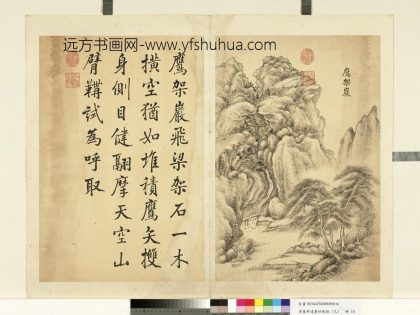 远方书画网-www.yfshuhua.com
鷹架巖飛梁架石一木
橫空猶如堆積鷹矢攫
身側目健翮摩天空山
臂鞲試為呼取
鷹架巖